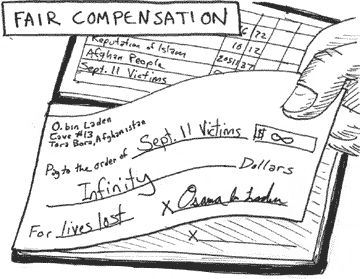 FAIR COMPENSATION
Reputation of Islam
Afghan People
Sept. 11 Victims
O. bin Laden
Cave #13
Tora Bora, Afghanistan
Pay to the order of Sept. 11 Victims $ ∞
Infinity Dollars
For lives lost X Osama bin Laden
X